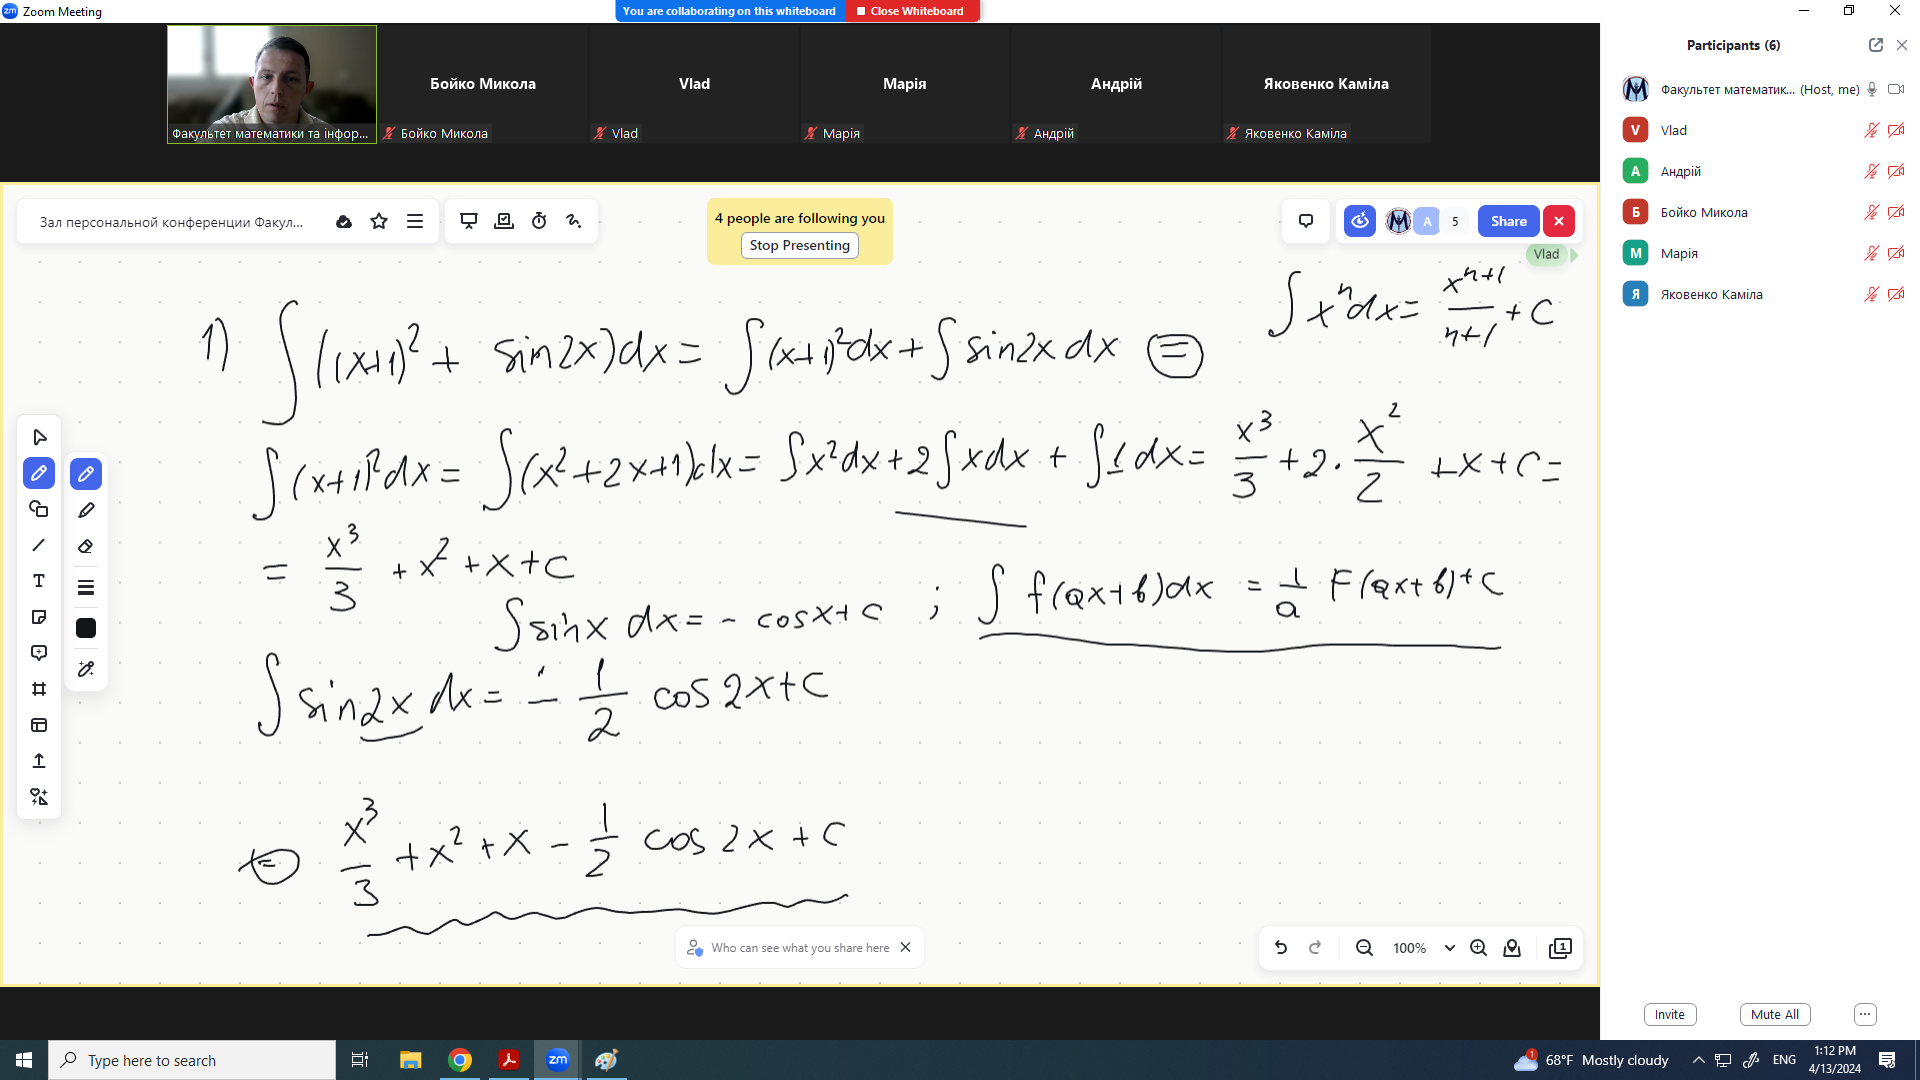 Zoom Meeting
You are collaborating on this whiteboard
Close Whiteboard
Факультет математики та інфор...
Бойко Микола
Бойко Микола
Vlad
Vlad
Марія
Марія
Андрій
Андрій
Яковенко Каміла
Яковенко Каміла
Participants (6)
Факультет математик... (Host, me)
V Vlad
А Андрій
Б Бойко Микола
М Марія
Я Яковенко Каміла
Зал персональной конференции Факул...
4 people are following you
Stop Presenting
А
5
Share
Vlad
∫ xⁿ dx = xⁿ⁺¹/(n+1) + C
1) ∫((x+1)² + sin2x)dx = ∫(x+1)²dx + ∫ sin2x dx =
∫(x+1)²dx = ∫(x²+2x+1)dx = ∫x²dx + 2∫xdx + ∫1dx = x³/3 + 2·x²/2 + x + C =
= x³/3 + x² + x + C
∫ sinx dx = - cosx + C ; ∫ f(ax+b)dx = 1/a F(ax+b) + C
∫ sin2x dx = - 1/2 cos2x + C
= x³/3 + x² + x - 1/2 cos2x + C
T
Who can see what you share here
100%
1
Invite
Mute All
Type here to search
zm
1
68°F Mostly cloudy
ENG
1:12 PM
4/13/2024